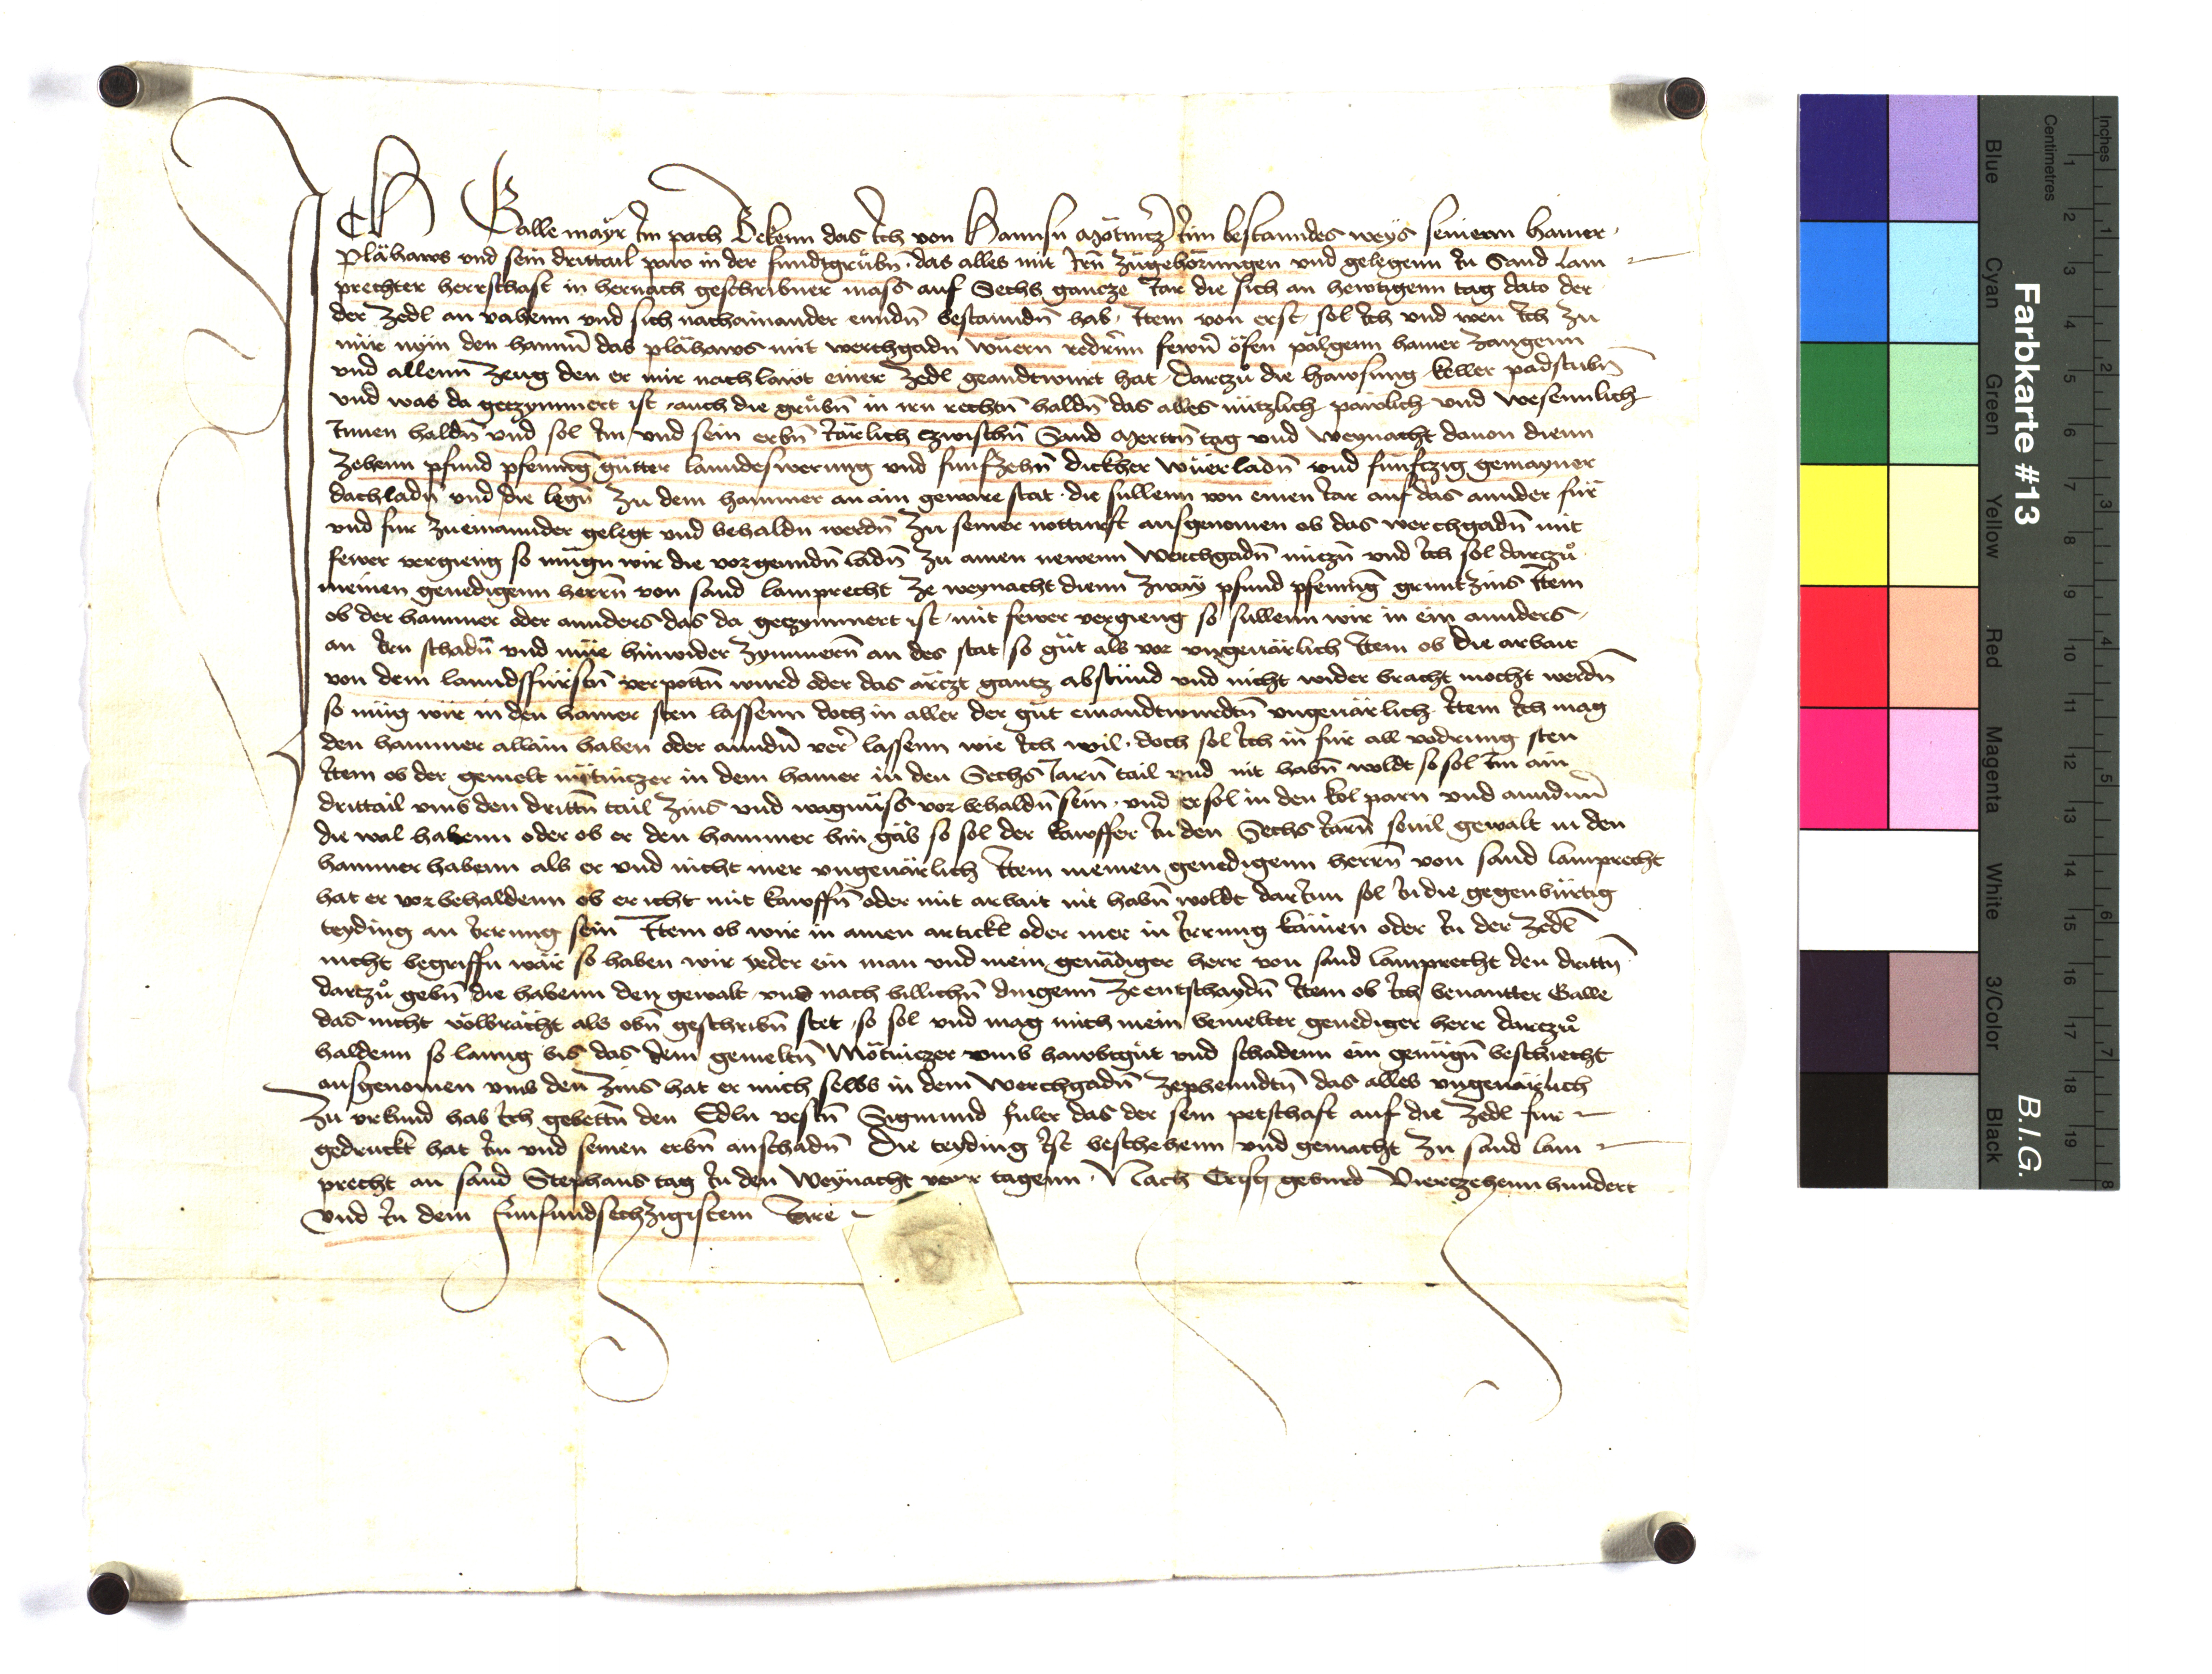 ICh Galle mayr Im pach Bekenn das Ich von Hannsn Mötnitzer Inn bestanndes weys seinenn hamer
Plähaws vnd sein drittail paw in der fundtgrubñ das alles mit Irñ zugehörungen vnd gelegenn In Sand lam
prechter herrschaft in hernach geschribner mass auf Sechs gancze Jar die sich an hewtigenn tag dato der
der zedl an vahenn vnd sich nachainander enndñ bestanndñ hab Item von erst sol Ich vnd wen Ich zu
mir nym den hammer das plähaws mit werchgadñ wuern redern fewrñ öfen pälgenn hamer zangenn
vnd allenn zeug den er mir nach lawt einer zedl geandtwurt hat Dartzu die hawsung keller padstubñ
vnd was da getzymmert ist auch die grubñ in irn rechtñ haldñ das alles nützlich pawlich vnd wesennlich
Innen haldñ vnd sol Im vnd sein erbñ Järlich czwischñ Sand Mertnñ tag vnd Weynacht dauon dienn
zehenn pfund pfenning gutter lanndeswerung vnd funfzehñ dickher wuer ladñ vnd funfczig gemayner
dachladñ vnd die legñ zu dem hammer an ain geware stat die sullenn von einen Jar auf das annder für
vnd fur zueinannder gelegt vnd behaldn werdñ zu seiner notturft ausgenomen ob das werchgadñ mit
fewer vergieng so mugn wir die vorgenndñ ladñ zu ainen newenn Werchgadñ niczñ vnd Ich sol darczu
meinen genedigenn herrñ von sand lamprecht ze weynacht dienn zway pfund pfenning gruntzins Item
ob der hammer oder annders das da getzymmert ist mit fewer vergieng so sullenn wir in ein annders
an Irn schadñ vnd müe hinwider zymmerñ an des stat so gut als vor vngeuärlich Item ob die arbait
von dem lanndsfürstñ verpottñ wurd oder das ärczt gantz abstünd vnd nicht wider bracht mocht werdñ
so müg wir in den hamer sten lassenn doch in aller der gut einandtwurdtñ vngeuärlich Item Ich mag
den hammer allain haben oder anndñ verr lassenn wie Ich wil doch sol Ich in fur all vodrung sten
Item ob der gemelt mötniczer in dem hamer in den Sechs Jarñ tail vnd nit habñ woldt so sol Im ain
drittail vmb den drittñ tail zins vnd wagnuss vor behaldñ sein vnd er sol in den kol parn vnd anndñ
die wal habenn oder ob er den hammer hin gäb so sol der kawffer In den Sechs Jarñ souil gewalt in den
hammer habenn als er vnd nicht mer vngeuärlich Item meinen genedigenn herrñ von sand lamprecht
hat er vorbehaldenn ob er icht mit kawffñ oder mit arbait nit habñ woldt darInn sol In die gegenbürtig
teyding an Irrung sein Item ob wir in ainen artickl oder mer in Irrung kämen oder In der zedl
nicht begriffn wär so haben wir yeder ein man vnd mein genädiger herr von sand lamprecht den drittñ
dartzu gebñ die habenn den gewalt vnd nach billichñ dingenn ze entschaydñ Item ob Ich benantter Galle
das nicht volbrächt als obñ geschribñ stet so sol vnd mag mich mein bemelter genediger herr darczu
haldenn so lanng bis das dem gemeltñ Mötniczer vmb hawbtgut vnd schadenn ein genügñ beschiecht
ausgenomen vmb den zins hat er mich selbs in dem Werchgadñ zephenndtñ das alles vngeuärlich
Zu vrkund hab Ich gebettñ den Edln vestñ Sigmund fuler das der sein petschaft auf die zedl fur
gedruckt hat Im vnd seinen erbñ anschadñ Die teyding Ist beschehenn vnd gemacht zu sand lam
precht an sand Stephans tag In den Weynacht veyr tagenn Nach Cristi geburd Vierczehenn hundert
vnd In dem funfundsechzigistem Jare
Farbkarte #13
B.I.G.
Inches
Centimetres
Blue
Cyan
Green
Yellow
Red
Magenta
White
3/Color
Black
1 2 3 4 5 6 7 8 9 10 11 12 13 14 15 16 17 18 19
1 2 3 4 5 6 7 8